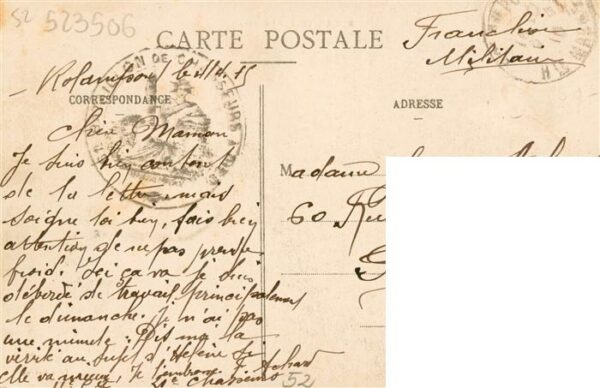 52 523506
CARTE POSTALE
Franchise
Militaire
Rolampont le
CORRESPONDANCE
ADRESSE
BATAILLON DE CHASSEURS
Chère Maman
Je suis bien content
de ta lettre mais
soigne toi bien, fais bien
attention de ne pas prendre
froid. Ici ça va je suis
débordé de travail principalement
le dimanche. Je n'ai pas
une minute. Dis moi la
vérité au sujet d'Hélène si
elle va mieux, Je t'embrasse
Achard
Chasseurs
52
Madame
60 Rue